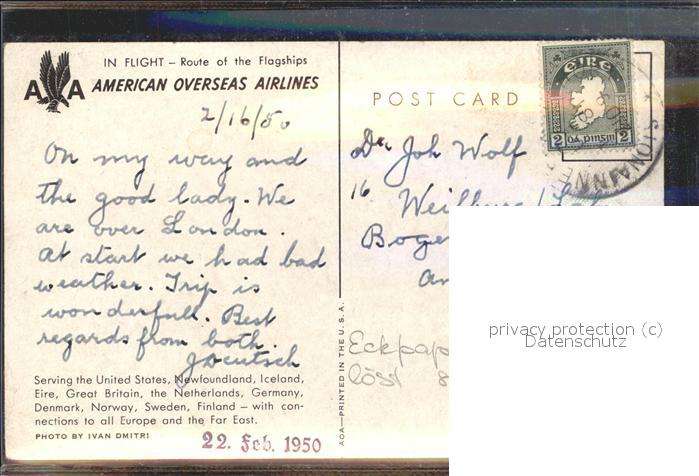 IN FLIGHT – Route of the Flagships
A A AMERICAN OVERSEAS AIRLINES
2/16/50
On my way and
the good lady. We
are over London.
At start we had bad
weather. Trip is
wonderfull. Best
regards from both.
JDeutsch
Serving the United States, Newfoundland, Iceland,
Eire, Great Britain, the Netherlands, Germany,
Denmark, Norway, Sweden, Finland — with con-
nections to all Europe and the Far East.
PHOTO BY IVAN DMITRI
22. Feb. 1950
AOA—PRINTED IN THE U. S. A.
POST CARD
éire
2 2
SIONAINNE
Dr. Joh Wolf
16 Weilburg/
Eckpap
löst
privacy protection (c)
Datenschutz